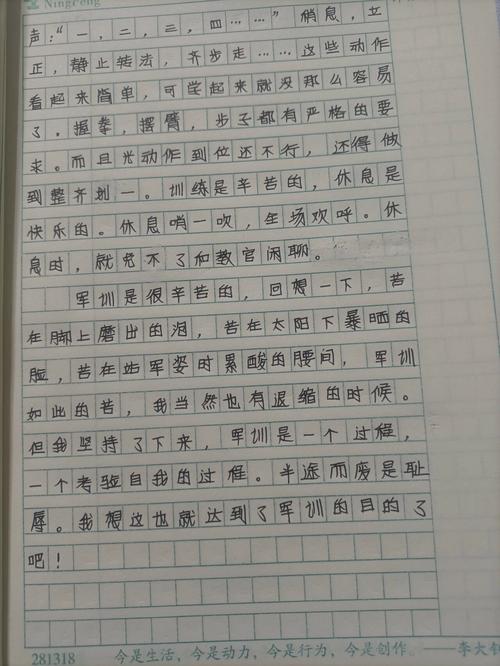 NingFeng
声：“一，二，三，四……”稍息，立
正，静止转法，齐步走……这些动作
看起来简单，可学起来就没那么容易
了。握拳，摆臂，步子都有严格的要
求。而且光动作到位还不行，还得做
到整齐划一。训练是辛苦的，休息是
快乐的。休息哨一吹，全场欢呼。休
息时，就免不了和教官闲聊。
军训是很辛苦的，回想一下，苦
在脚上磨出的泡，苦在太阳下暴晒的
脸，苦在站军姿时累酸的腰间，军训
如此的苦，我当然也有退缩的时候。
但我坚持了下来，军训是一个过程，
一个考验自我的过程。半途而废是耻
辱。我想这也就达到了军训的目的了
吧！
281318 今是生活，今是动力，今是行为，今是创作。——李大